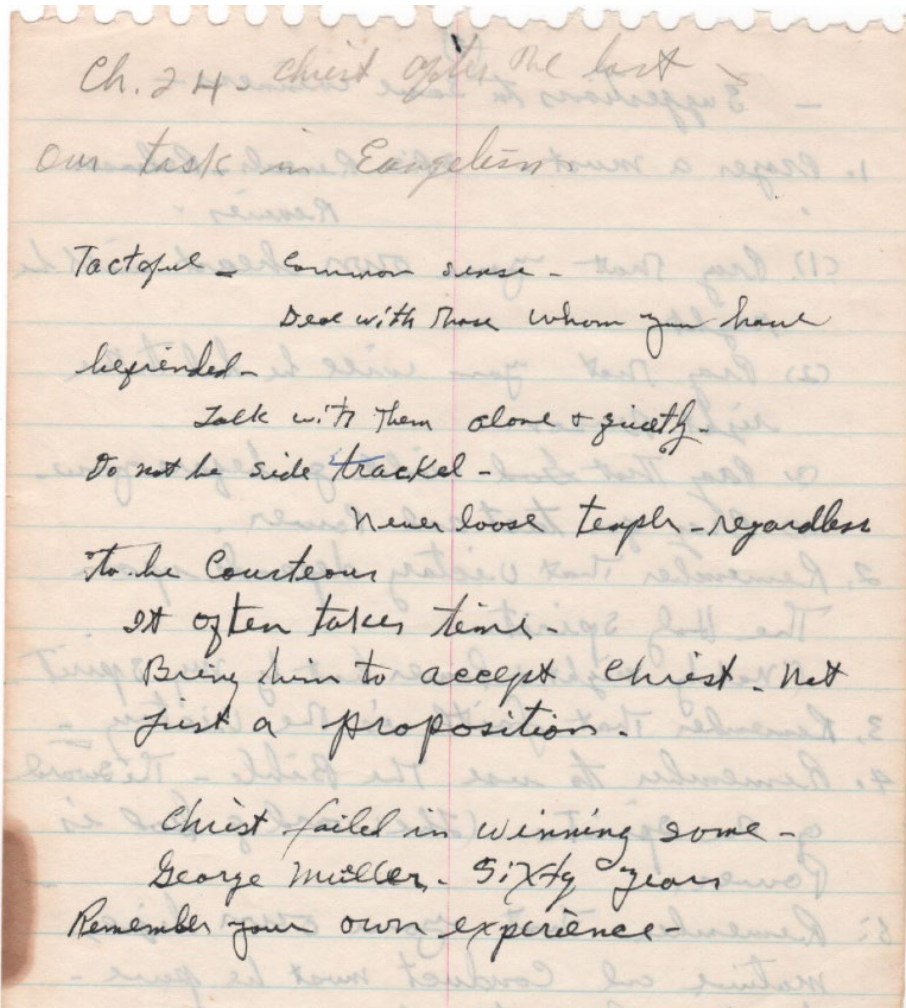 Ch. 24. Christ after the lost -
Our task in Evangelism.
Tactful - Common sense -
Deal with those whom you have
befriended -
Talk with them alone & quietly -
Do not be side tracked -
Never loose temper - regardless
to be Courteous
It often takes time -
Bring him to accept Christ - Not
just a proposition.
Christ failed in winning some -
George Müller - Sixty years
Remember your own experience -